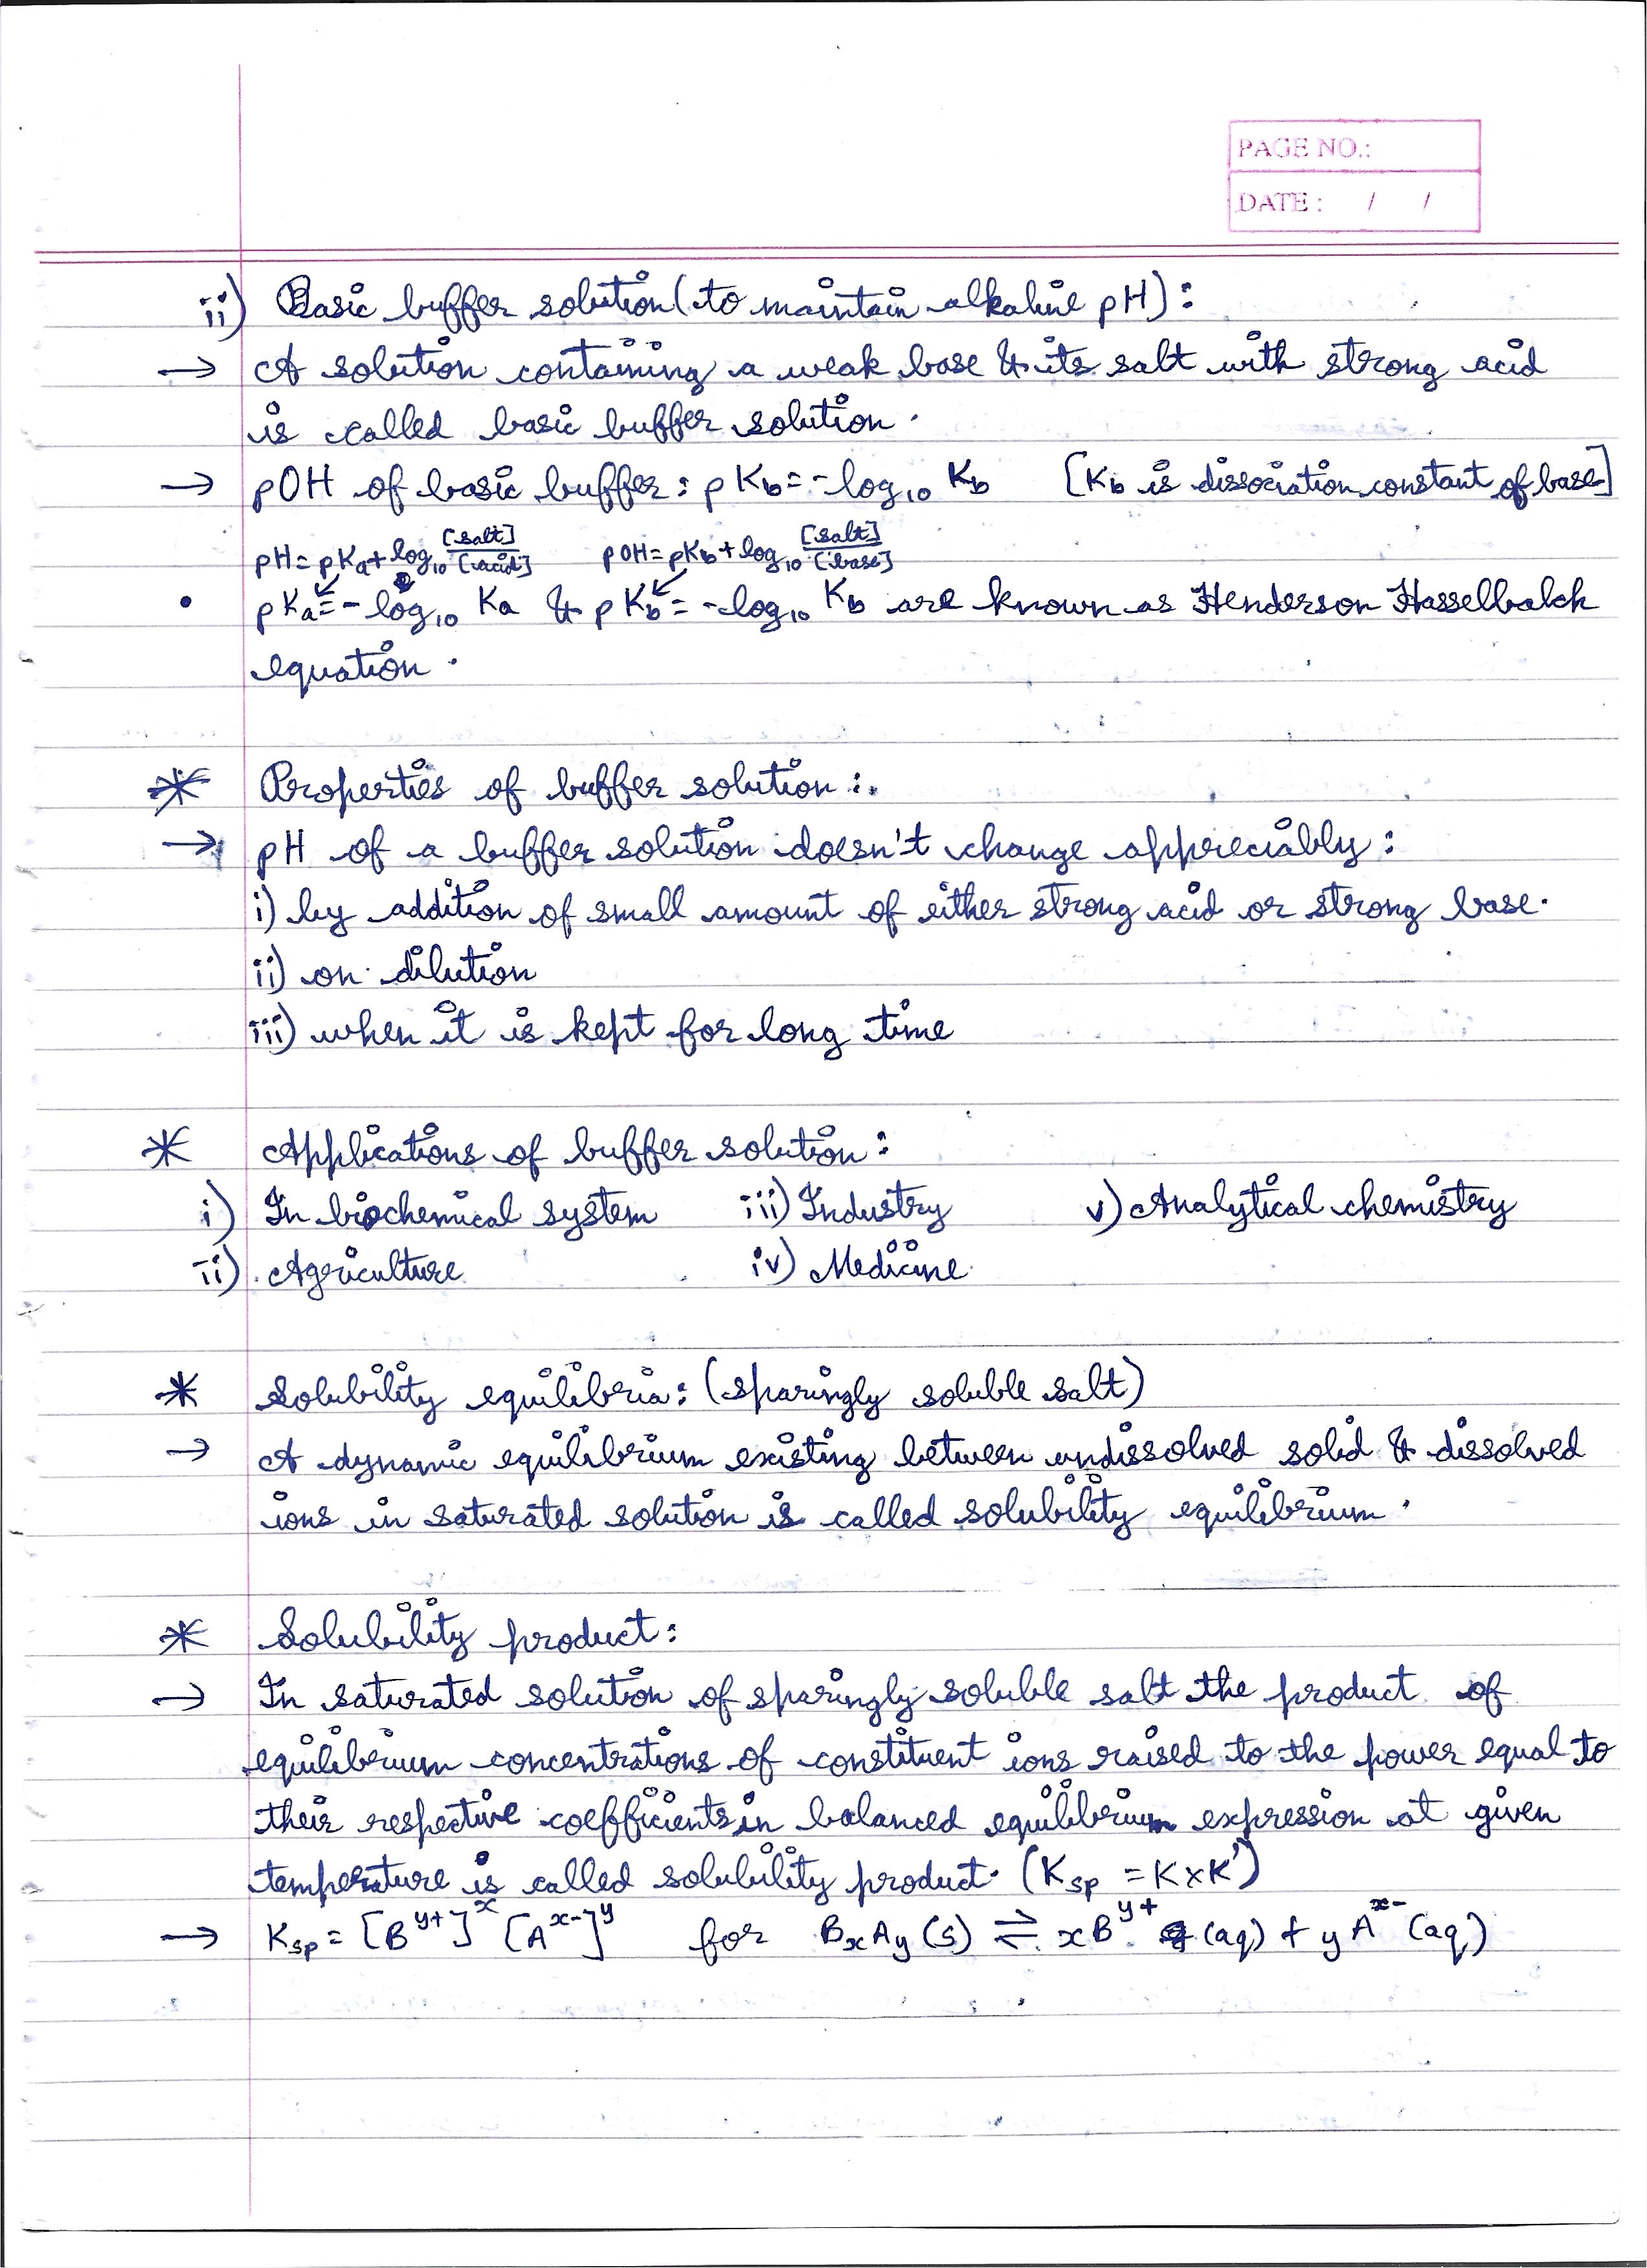 PAGE NO.:
DATE : / /
ii) Basic buffer solution (to maintain alkaline pH):
→ A solution containing a weak base & its salt with strong acid
is called basic buffer solution.
→ pOH of basic buffer: pKb = -log10 Kb [Kb is dissociation constant of base]
pH = pKa + log10 [salt]/[acid] pOH = pKb + log10 [salt]/[base]
• pKa = -log10 Ka & pKb = -log10 Kb are known as Henderson Hasselbalch
equation.
* Properties of buffer solution:
→ pH of a buffer solution doesn't change appreciably:
i) by addition of small amount of either strong acid or strong base.
ii) on dilution
iii) when it is kept for long time
* Applications of buffer solution:
i) In biochemical system iii) Industry v) Analytical chemistry
ii) Agriculture iv) Medicine
* Solubility equilibria: (sparingly soluble salt)
→ A dynamic equilibrium existing between undissolved solid & dissolved
ions in saturated solution is called solubility equilibrium.
* Solubility product:
→ In saturated solution of sparingly soluble salt the product of
equilibrium concentrations of constituent ions raised to the power equal to
their respective coefficients in balanced equilibrium expression at given
temperature is called solubility product. (Ksp = K×K')
→ Ksp = [B^y+]^x [A^x-]^y for BxAy (s) ⇌ xB^y+ (aq) + yA^x- (aq)